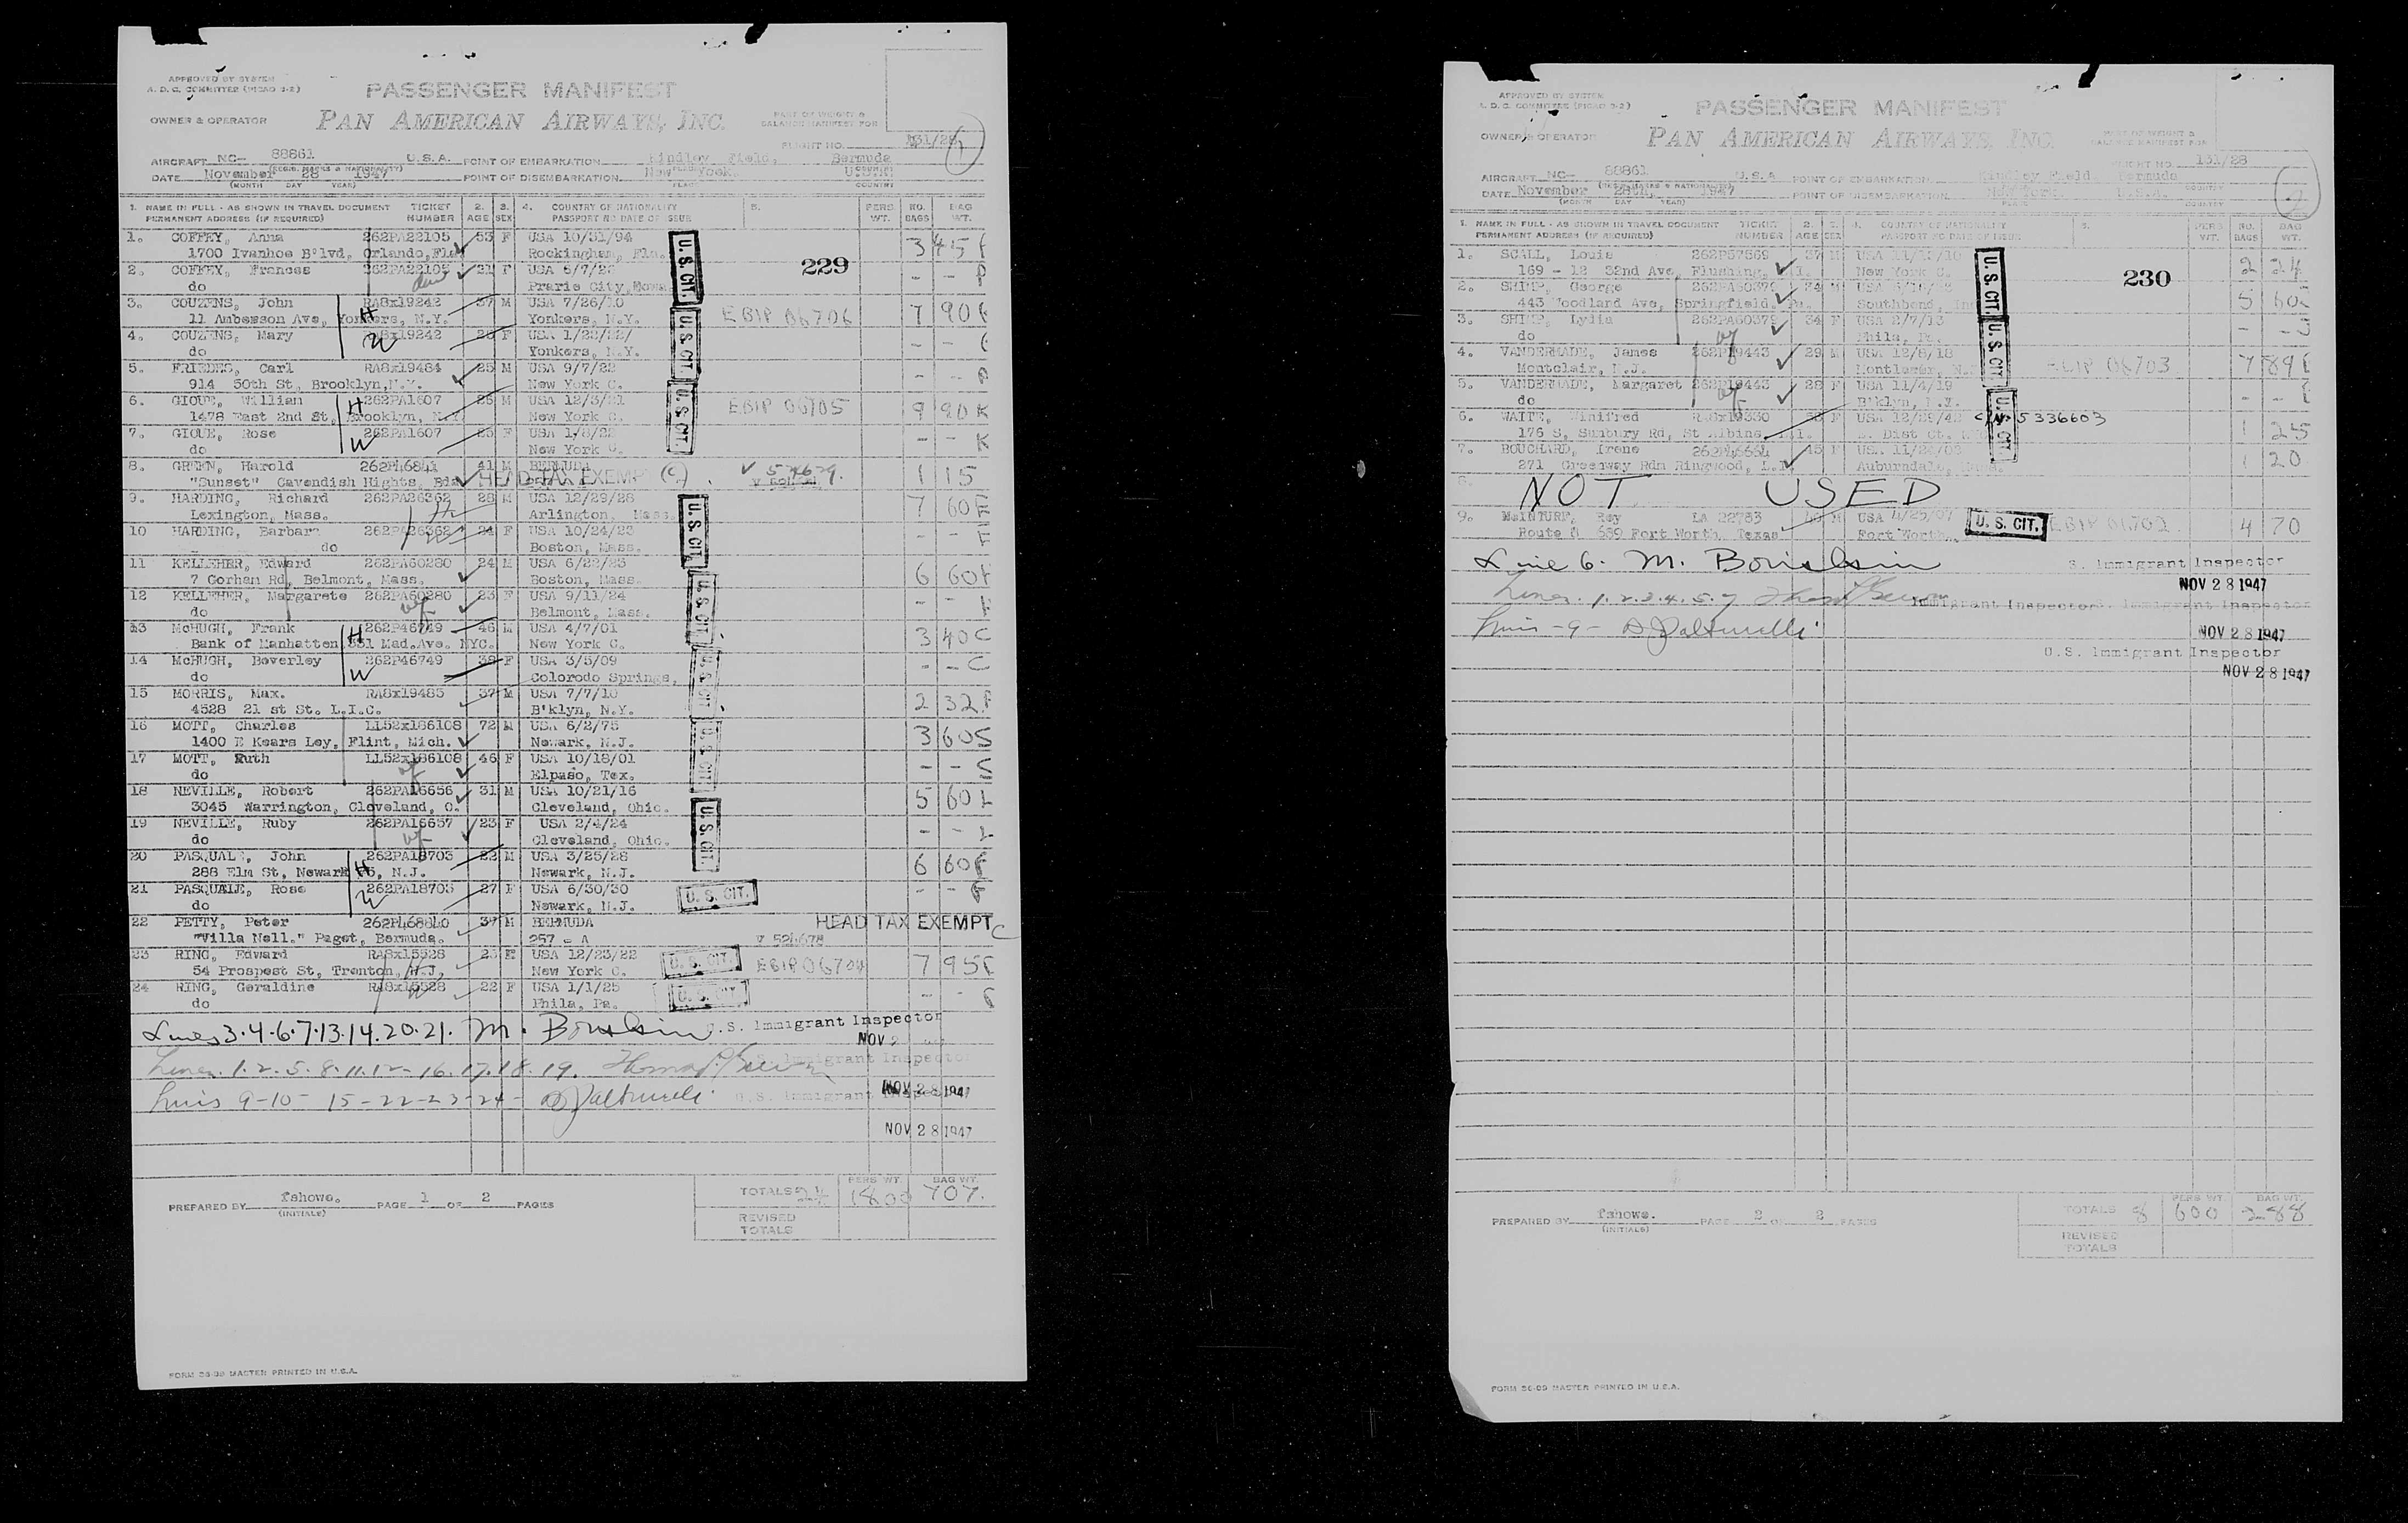 APPROVED BY SYSTEM
A. D. C. COMMITTEE (PICAO 3-2)
PASSENGER MANIFEST
OWNER & OPERATOR PAN AMERICAN AIRWAYS, INC.
PART OF WEIGHT & BALANCE MANIFEST FOR
FLIGHT NO. 131/28 1
AIRCRAFT NC- 88861 U.S.A. POINT OF EMBARKATION Kindley Field, Bermuda
DATE November 28 1947 POINT OF DISEMBARKATION New York. U.S.A.
(MONTH DAY YEAR) PLACE COUNTRY
1. NAME IN FULL - AS SHOWN IN TRAVEL DOCUMENT TICKET 2. 3. 4. COUNTRY OF NATIONALITY 5. PERS. NO. BAG
PERMANENT ADDRESS (IF REQUIRED) NUMBER AGE SEX PASSPORT NO DATE OF ISSUE WT. BAGS WT.
229
1. COFFEY, Anna 262PA22105 53 F USA 10/31/94 3 45
1700 Ivanhoe B'lvd, Orlando, Fla Rockingham,
2. COFFEY, Frances 262PA22105 21 F USA - -
do Prarie City,
3. COUZENS, John RA8x19242 37 M USA 7/26/10 EBIP 06706 7 90
11 Ambesson Ave, Yonkers, N.Y. H Yonkers, N.Y.
4. COUZENS, Mary RA8x19242 F USA - -
do W Yonkers, N.Y.
5. FRIEDES, Carl RA8x19484 25 M USA 9/7/22 - -
914 50th St, Brooklyn, N.Y. New York C.
6. GIOUE, William 262PA1607 25 M USA 12/3/21 EBIP 06705 9 90 K
1478 East 2nd St, Brooklyn, N.Y H New York C.
7. GIOUE, Rose 262PA1607 25 F USA 1/8/22 - - K
do W New York C.
8. GREEN, Harold 262P46841 41 M BERMUDA 1 15
"Sunset" Cavendish Hights, Bda HEAD TAX EXEMPT (C)
9. HARDING, Richard 262PA26362 28 M USA 12/29/28 7 60
Lexington, Mass. H Arlington, Mass.
10 HARDING, Barbara 262PA26362 24 F USA 10/24/23 - -
do Boston, Mass.
11 KELLEHER, Edward 262PA60280 24 M USA 6/22/23 6 60
7 Gorham Rd, Belmont, Mass. Boston, Mass.
12 KELLEHER, Margarete 262PA60280 23 F USA 9/11/24 - -
do wf Belmont, Mass.
13 McHUGH, Frank 262P46749 46 M USA 4/7/01 3 40 C
Bank of Manhatten 531 Mad. Ave. NYC. H New York C.
14 McHUGH, Beverley 262P46749 38 F USA 3/5/09 - - C
do W Colorodo Springs,
15 MORRIS, Max. RA8x19485 37 M USA 7/7/10 2 32
4528 21 st St. L.I.C. B'klyn, N.Y.
16 MOTT, Charles LL52x186108 72 M USA 6/2/75 3 60 S
1400 E Kears Ley, Flint, Mich. Newark, N.J.
17 MOTT, Ruth LL52x186108 46 F USA 10/18/01 - - S
do wf Elpaso, Tex.
18 NEVILLE, Robert 262PA16656 31 M USA 10/21/16 5 60
3045 Warrington, Cleveland, O. Cleveland, Ohio.
19 NEVILLE, Ruby 262PA16657 23 F USA 2/4/24 - -
do wf Cleveland, Ohio.
20 PASQUALE, John 262PA18703 22 M USA 3/25/28 6 60
288 Elm St, Newark, N.J. H Newark, N.J.
21 PASQUALE, Rose 262PA18703 27 F USA 6/30/30 U. S. CIT. - -
do W Newark, N.J.
22 PETTY, Peter 262P46840 37 M BERMUDA HEAD TAX EXEMPT C
"Villa Nell." Paget, Bermuda. 257 - A
23 RING, Edward RA8x15528 23 USA 12/23/22 U. S. CIT. EBIP 06704 7 95
54 Prospest St, Trenton, N.J. New York C.
24 RING, Geraldine RA8x15528 22 F USA 1/1/25 U. S. CIT. - -
do Phila, Pa.
U. S. CIT.
U. S. CIT.
U. S. CIT.
U. S. CIT.
U. S. CIT.
U. S. CIT.
U. S. CIT.
U. S. CIT.
Lines 3.4.6.7.13.14.20.21. M. U.S. Immigrant Inspector
NOV 2
Lines. 1.2.5.8.11.12-16.17.18.19. U.S. Immigrant Inspector
NOV 28 1947
9-10-15-22-23-24- U.S. Immigrant Inspector
NOV 28 1947
TOTALS 24 PERS WT. 1800 BAG WT. 707.
PREPARED BY fshowe. PAGE 1 OF 2 PAGES
(INITIALS)
REVISED TOTALS
FORM 36-09 MASTER PRINTED IN U.S.A.
APPROVED BY SYSTEM
A. D. C. COMMITTEE (PICAO 3-2)
PASSENGER MANIFEST
OWNER & OPERATOR PAN AMERICAN AIRWAYS, INC.
PART OF WEIGHT & BALANCE MANIFEST FOR
FLIGHT NO. 131/28 2
AIRCRAFT NC- 88861 U.S.A. POINT OF EMBARKATION Kindley Field. Bermuda
DATE November 28th, 1947 POINT OF DISEMBARKATION New York. U.S.A.
(MONTH DAY YEAR) PLACE COUNTRY
1. NAME IN FULL - AS SHOWN IN TRAVEL DOCUMENT TICKET 2. 3. 4. COUNTRY OF NATIONALITY 5. PERS NO. BAG
PERMANENT ADDRESS (IF REQUIRED) NUMBER AGE SEX PASSPORT NO DATE OF ISSUE WT. BAGS WT.
230
1. SCALL, Louis 262P57569 37 M USA 2 24
169 - 12 32nd Ave, Flushing, New York C.
2. SHIMP, George 262PA60379 34 M USA 5 60
443 Woodland Ave, Springfield, Pa. Southbend,
3. SHIMP, Lydia 262PA60379 34 F USA 2/7/13 - -
do wf Phila, Pa.
4. VANDERHADE, James 262P19443 29 M USA 12/8/18 EBIP 06703 7 89
Montclair, N.J. Montlcair,
5. VANDERHADE, Margaret 262P19443 28 F USA 11/4/19 - -
do wf B'klyn, N.Y.
6. WAITE, Winifred RA8x19330 F USA 5336603 1 25
176 S, Sunbury Rd, St Albins, Dist Ct.
7. BOUCHARD, Irene 45 F USA 1 20
271 Greenway Rdn Ringwood, L.I. Auburndale,
8. NOT USED
9. McINTURF, Roy LA 22783 M USA U. S. CIT. EBIP 06702 4 70
Route 8 659 Fort Worth, Texas Fort Worth,
U. S. CIT.
U. S. CIT.
U. S. CIT.
Line 6. M. S. Immigrant Inspector
NOV 28 1947
Lines. 1.2.3.4.5.7 Immigrant Inspector
-9- NOV 28 1947
U.S. Immigrant Inspector
NOV 28 1947
PREPARED BY fshowe. PAGE 2 OF 2 PAGES
(INITIALS)
TOTALS 8 PERS WT. 600 BAG WT. 288
REVISED TOTALS
FORM 36-09 MASTER PRINTED IN U.S.A.